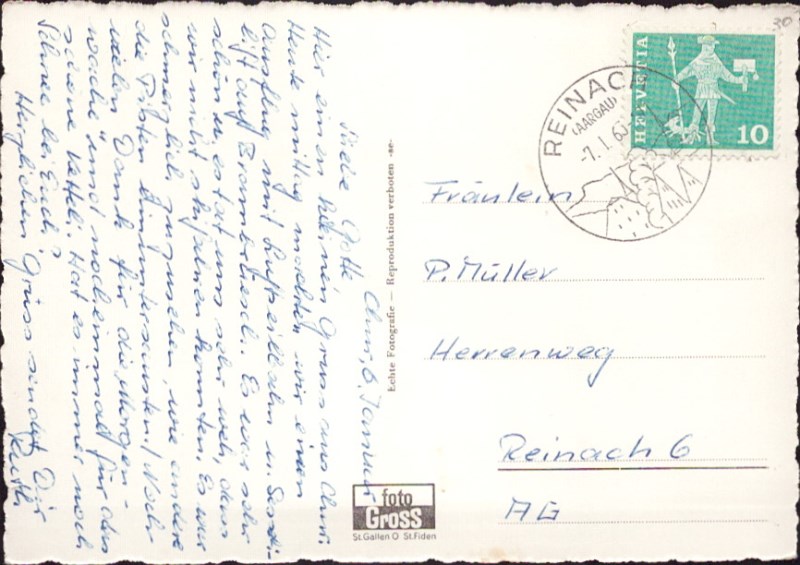 Chur, 6. Januar
Liebe Gotte
Hier einen kleinen Gruss aus Chur.
Heute mittag machten wir einen
Ausflug mit Luftseilbahn u. Sessel-
lift auf Brambrüesch. Es war sehr
schön u. es tat uns sehr weh, dass
wir nicht skifahren konnten. Es war
schmerzlich zuzusehen, wie andere
die Pisten hinuntersausten! Noch
vielen Dank für die Morgen-
und nocheinmal für das
schöne Hat es immer noch
Schnee bei Euch?
Herzlichen Gruss sendet Dir
Ruth
Echte Fotografie — Reproduktion verboten -se-
foto
Gross
St.Gallen O St.Fiden
30
HELVETIA
10
REINACH
(AARGAU)
-7.1.63
Fräulein
P. Müller
Herrenweg
Reinach 6
AG